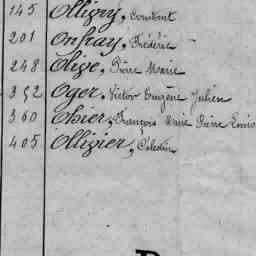 145 Olligny, Constant
201 Onfray, Frédéric
248 Olive, Pierre Marie
352 Oger, Victor Eugène Julien
360 Ohier, François Marie Pierre Louis
405 Ollivier, Célestin